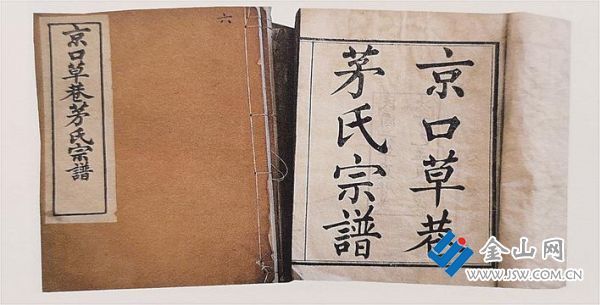 六
京口草巷茅氏宗譜
京口草巷
茅氏宗譜
金山网
WWW.JSW.COM.CN